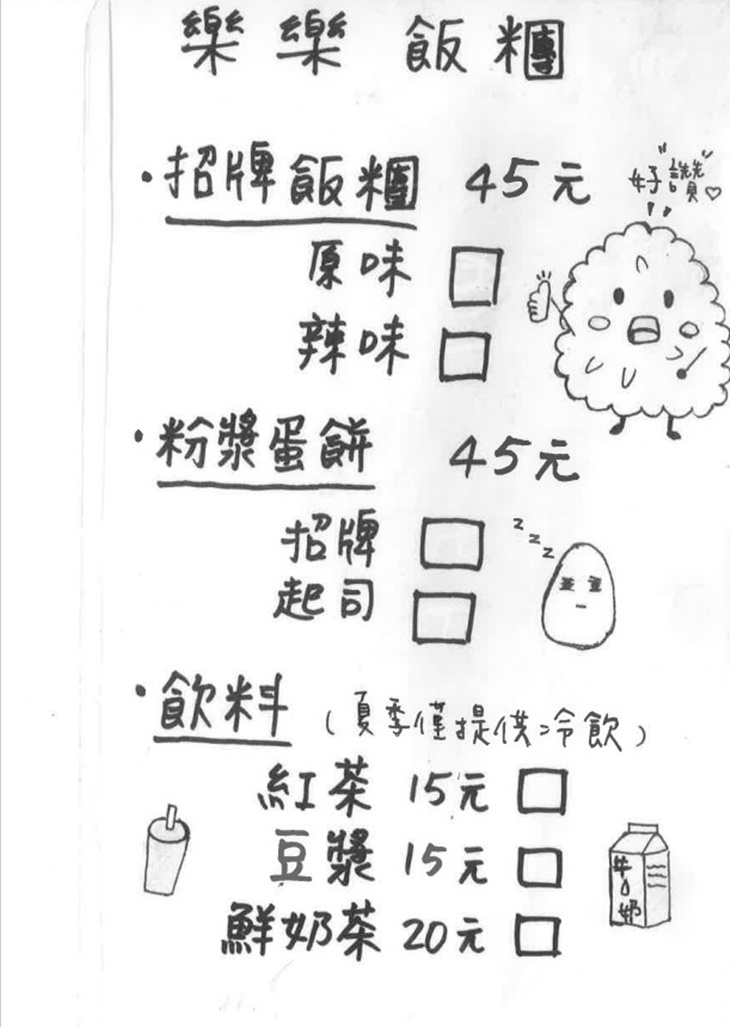 樂樂飯糰
·招牌飯糰 45元
好讚♡
原味 □
辣味 □
·粉漿蛋餅 45元
招牌 □
z z z
起司 □
·飲料 (夏季僅提供冷飲)
紅茶 15元 □
豆漿 15元 □
牛奶
鮮奶茶 20元 □